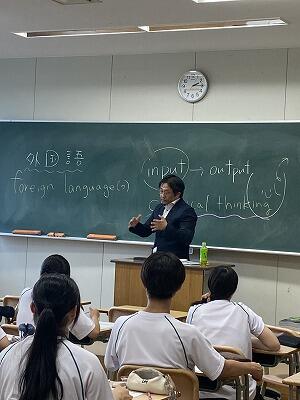 外国語
foreign language(s)
input → output
critical thinking